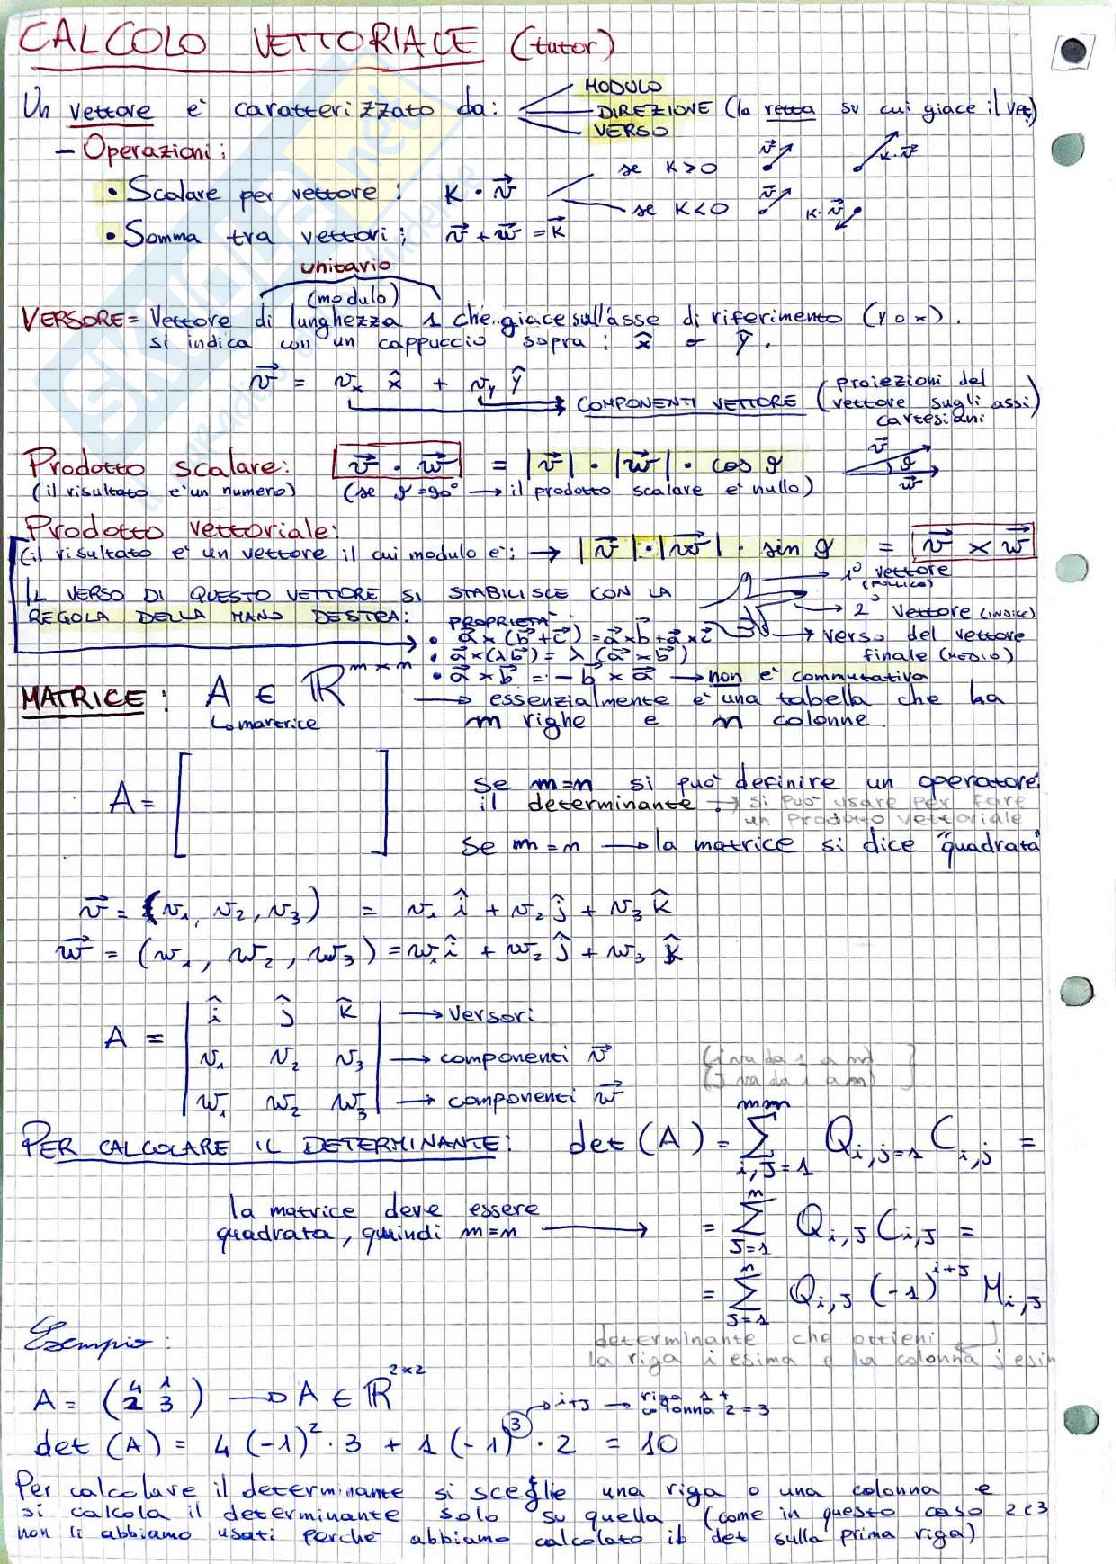 CALCOLO VETTORIALE (tutor)
Un vettore e' caratterizzato da: MODULO
DIREZIONE (la retta su cui giace il vet)
VERSO
- Operazioni:
• Scalare per vettore: K · v⃗ se K>0 v⃗ K·v⃗
se K<0 v⃗ K·v⃗
• Somma tra vettori: v⃗ + w⃗ = k⃗
unitario
(modulo)
VERSORE = Vettore di lunghezza 1 che giace sull'asse di riferimento (y o x).
si indica con un cappuccio sopra: x̂ o ŷ.
v⃗ = vₓ x̂ + vᵧ ŷ
COMPONENTI VETTORE (proiezioni del
vettore sugli assi)
cartesiani
Prodotto scalare: v⃗ · w⃗ = |v⃗| · |w⃗| · cos φ v⃗ φ w⃗
(il risultato e' un numero) (se φ=90° → il prodotto scalare e' nullo)
Prodotto vettoriale:
(il risultato e' un vettore il cui modulo e': → |v⃗|·|w⃗| · sin φ = v⃗ × w⃗
IL VERSO DI QUESTO VETTORE SI STABILISCE CON LA
REGOLA DELLA MANO DESTRA:
1° vettore
(POLLICE)
2° Vettore (INDICE)
verso del vettore
finale (MEDIO)
PROPRIETÀ
• a⃗ × (b⃗ + c⃗) = a⃗×b⃗ + a⃗×c⃗
• a⃗ × (λb⃗) = λ (a⃗ × b⃗)
• a⃗ × b⃗ = - b⃗ × a⃗ → non e' commutativa
MATRICE: A ∈ ℝ^(m×n) → essenzialmente e' una tabella che ha
matrice m righe e n colonne.
A = [ ]
Se m=n si puo' definire un operatore:
il determinante. → si puo' usare per fare
un prodotto vettoriale
Se m=n → la matrice si dice "quadrata"
v⃗ = (v₁, v₂, v₃) = v₁ î + v₂ ĵ + v₃ k̂
w⃗ = (w₁, w₂, w₃) = w₁ î + w₂ ĵ + w₃ k̂
A = | î ĵ k̂ | → Versori
v₁ v₂ v₃ → componenti v⃗
w₁ w₂ w₃ → componenti w⃗
(i va da 1 a m)
(j va da 1 a n)
PER CALCOLARE IL DETERMINANTE: det (A) = Σ(i,j=1)^(m,n) Q i,j=1 C i,j =
la matrice deve essere
quadrata, quindi m=n → = Σ(j=1)^n Q i,j C i,j =
= Σ(j=1)^n Q i,j (-1)^(i+j) M i,j
determinante che ottieni
la riga i esima e la colonna j esim
Esempio:
A = (4 1
2 3) → A ∈ ℝ^(2×2)
i+j → riga 1 +
colonna 2 = 3
det (A) = 4 (-1)² · 3 + 1 (-1)³ · 2 = 10
Per calcolare il determinante si sceglie una riga o una colonna e
si calcola il determinante solo su quella (come in questo caso 2 e 3
non li abbiamo usati perche' abbiamo calcolato il det sulla prima riga)